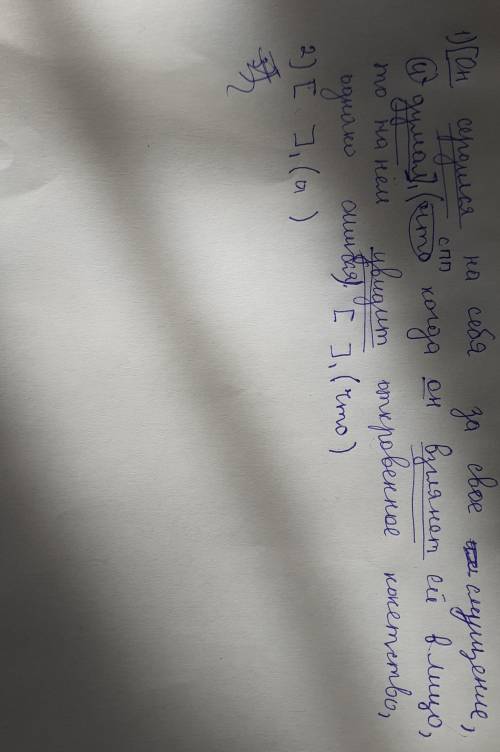 1) [Он сердился на себя за свое смущение,
и думал], (что когда он взглянет ей в лицо,
спп
то на нём увидит откровенное кокетство,
однако ошибся). [ ], (что)
2) [ ], (